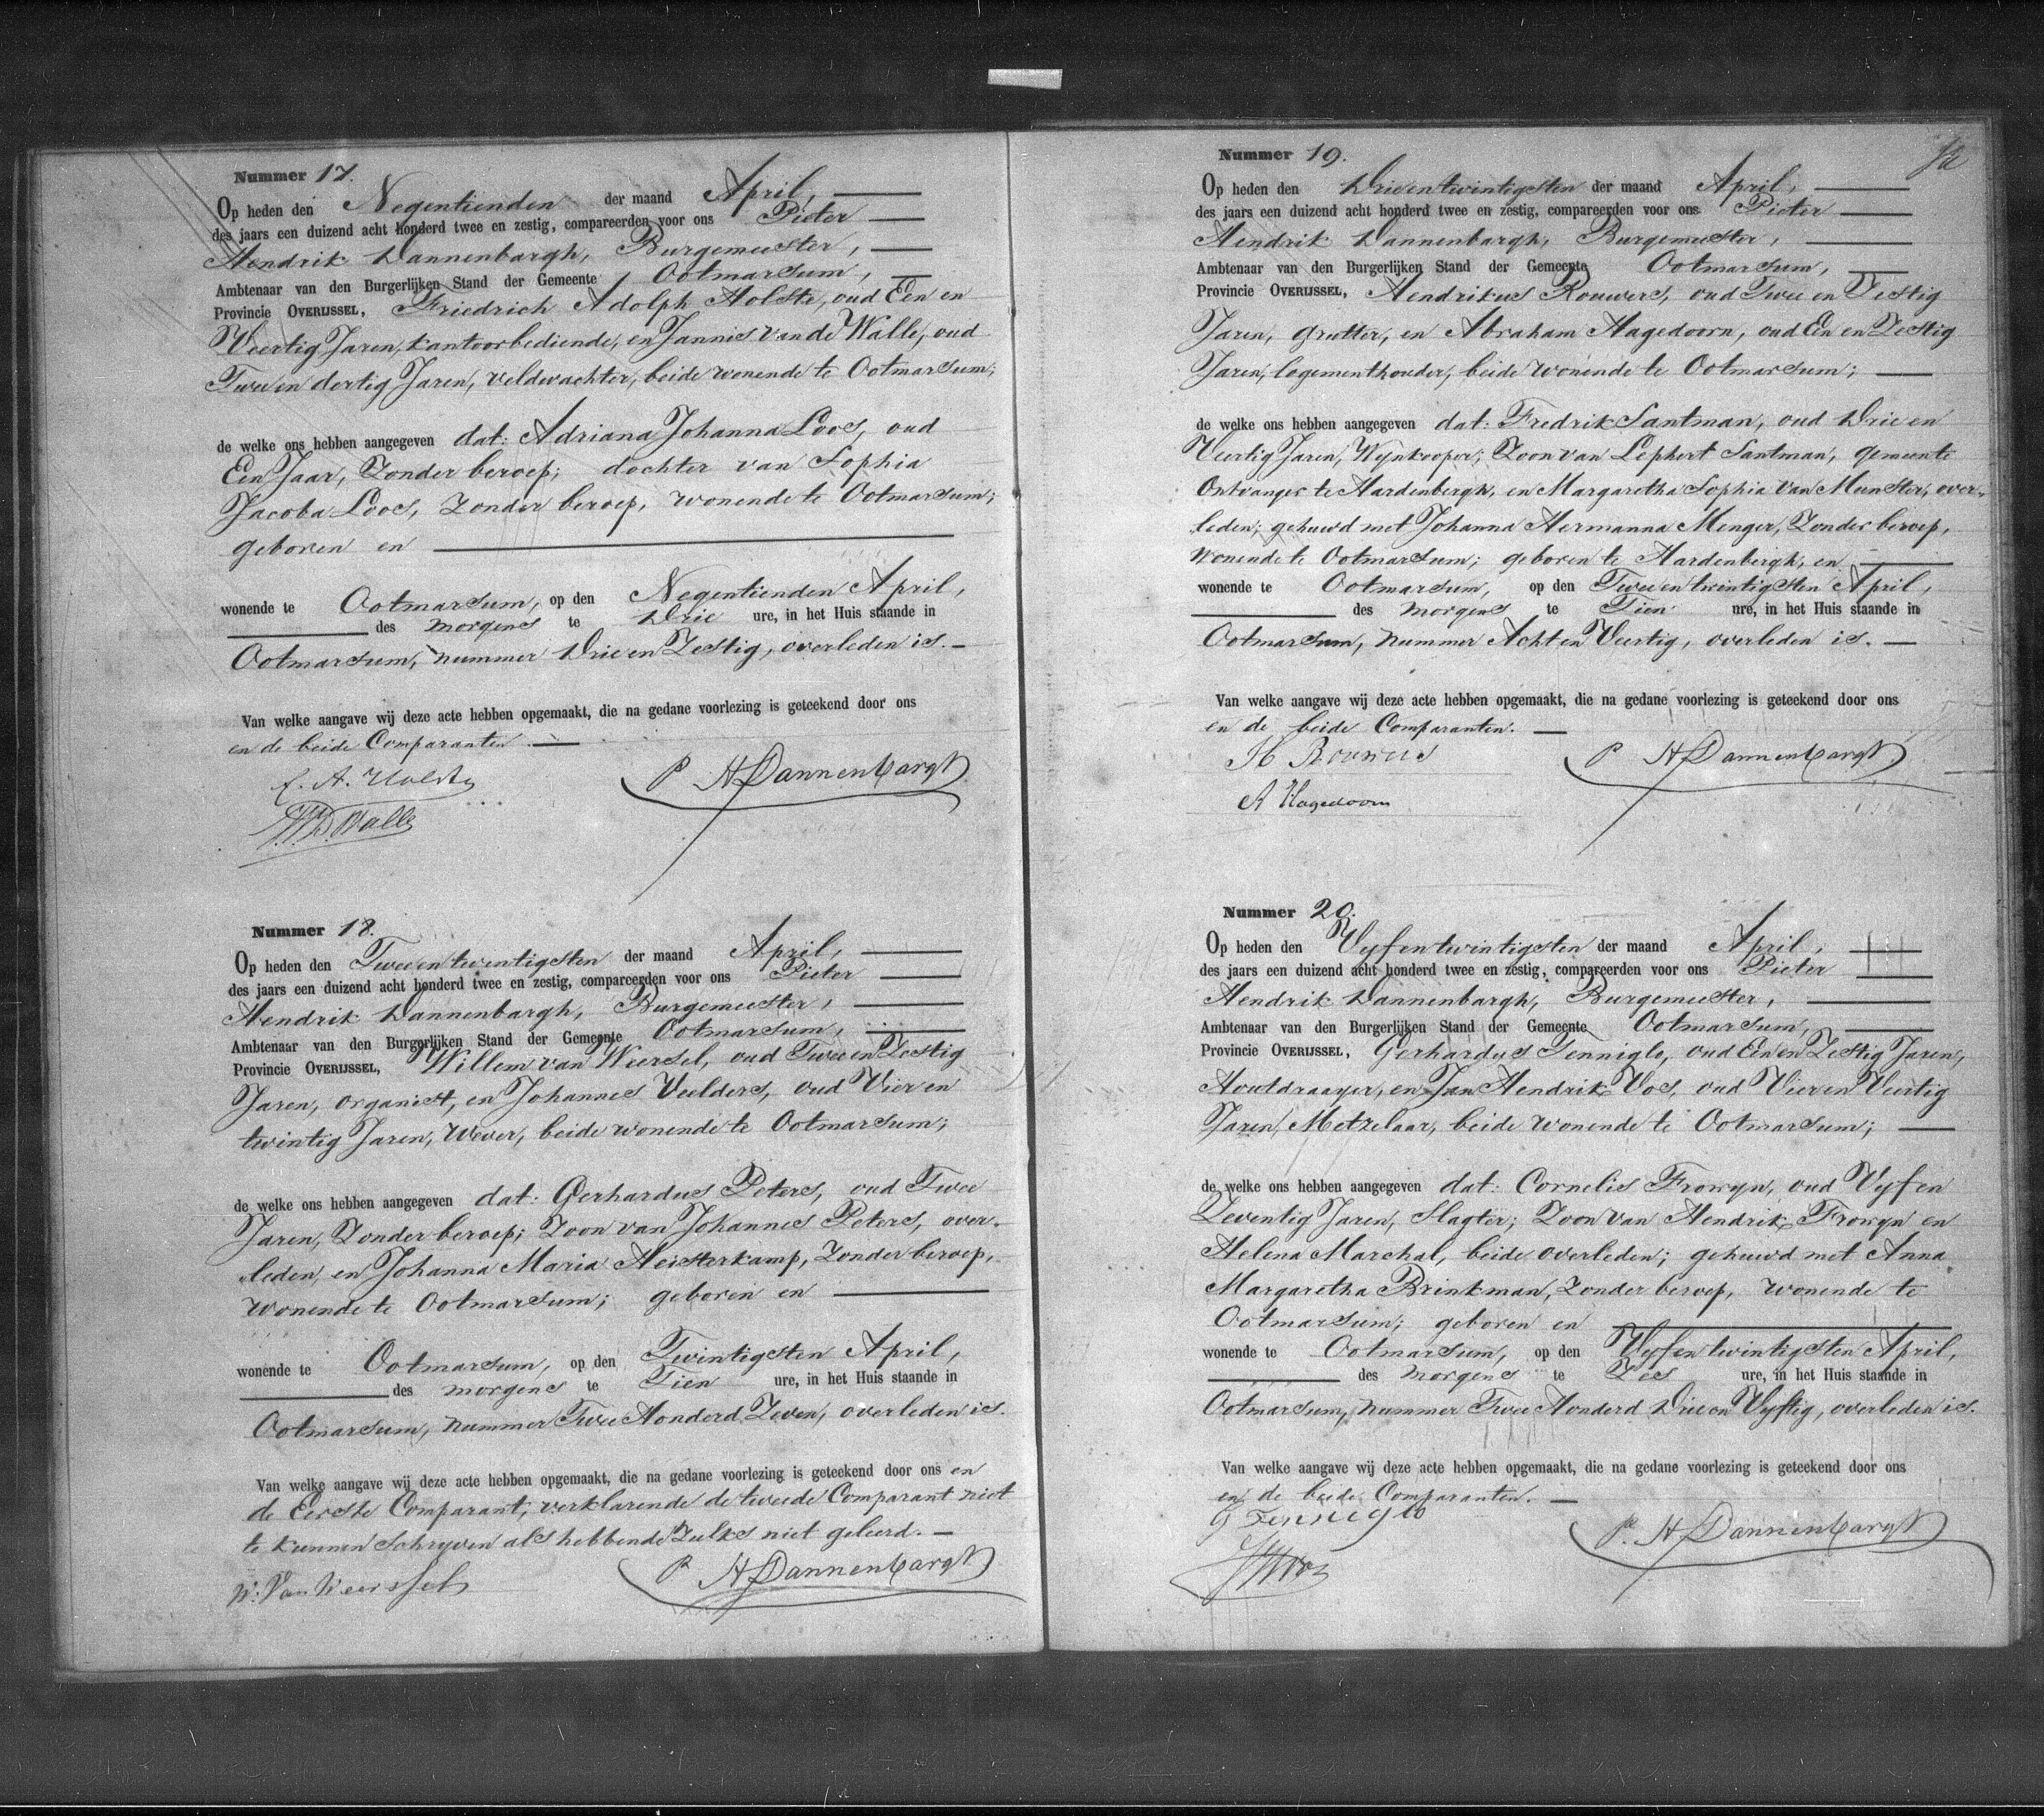 Nummer 17.
Op heden den Negentienden der maand April,
des jaars een duizend acht honderd twee en zestig, compareerden voor ons Pieter
Hendrik Dannenbargh, Burgemeester,
Ambtenaar van den Burgerlijken Stand der Gemeente Ootmarsum,
Provincie OVERIJSSEL, Friedrich Adolph Holste, oud Een en
Veertig Jaren, kantoorbediende, en Jannis van de Walle, oud
Twee en dertig Jaren, veldwachter, beide wonende te Ootmarsum;
de welke ons hebben aangegeven dat: Adriana Johanna Loos, oud
Een Jaar, Zonder beroep; dochter van Sophia
Jacoba Loos, Zonder beroep, wonende te Ootmarsum;
geboren en
wonende te Ootmarsum, op den Negentienden April,
des morgens te Drie ure, in het Huis staande in
Ootmarsum, nummer Drie en Zestig, overleden is.
Van welke aangave wij deze acte hebben opgemaakt, die na gedane voorlezing is geteekend door ons
en de beide Comparanten.
F. A. Holste P H Dannenbargh
Walle
Nummer 18.
Op heden den Twee en twintigsten der maand April,
des jaars een duizend acht honderd twee en zestig, compareerden voor ons Pieter
Hendrik Dannenbargh, Burgemeester,
Ambtenaar van den Burgerlijken Stand der Gemeente Ootmarsum,
Provincie OVERIJSSEL, Willem van Weersel, oud Twee en Zestig
Jaren, organist, en Johannes Veelders, oud Vier en
twintig Jaren, Wever, beide wonende te Ootmarsum;
de welke ons hebben aangegeven dat: Gerhardus Peters, oud Twee
Jaren, Zonder beroep; Zoon van Johannes Peters, over-
leden, en Johanna Maria Heisterkamp, Zonder beroep,
wonende te Ootmarsum; geboren en
wonende te Ootmarsum, op den Twintigsten April,
des morgens te Tien ure, in het Huis staande in
Ootmarsum, nummer Twee Honderd Zeven, overleden is.
Van welke aangave wij deze acte hebben opgemaakt, die na gedane voorlezing is geteekend door ons en
de Eerste Comparant, verklarende de tweede Comparant niet
te kunnen Schryven als hebbende Zulks niet geleerd.
W: Van Weerssel P H Dannenbargh
Nummer 19.
Op heden den Drie en twintigsten der maand April,
des jaars een duizend acht honderd twee en zestig, compareerden voor ons Pieter
Hendrik Dannenbargh, Burgemeester,
Ambtenaar van den Burgerlijken Stand der Gemeente Ootmarsum,
Provincie OVERIJSSEL, Hendrikus Rouwers, oud Twee en Zestig
Jaren, grutter, en Abraham Hagedoorn, oud Een en Zestig
Jaren, logementhouder, beide wonende te Ootmarsum;
de welke ons hebben aangegeven dat: Fredrik Santman, oud Drie en
Veertig Jaren, Wynkooper; Zoon van Lephert Santman, gemeente
Ontvanger te Hardenbergh, en Margaretha Sophia van Munster, over-
leden; gehuwd met Johanna Hermanna Menger, Zonder beroep,
wonende te Ootmarsum; geboren te Hardenbergh, en
wonende te Ootmarsum, op den Twee en twintigsten April,
des morgens te Tien ure, in het Huis staande in
Ootmarsum, nummer Acht en Veertig, overleden is.
Van welke aangave wij deze acte hebben opgemaakt, die na gedane voorlezing is geteekend door ons
en de beide Comparanten.
H Rouwers P H Dannenbargh
A Hagedoorn
Nummer 20.
Op heden den Vyf en twintigsten der maand April,
des jaars een duizend acht honderd twee en zestig, compareerden voor ons Pieter
Hendrik Dannenbargh, Burgemeester,
Ambtenaar van den Burgerlijken Stand der Gemeente Ootmarsum,
Provincie OVERIJSSEL, Gerhardus Tenniglo, oud Een en Zestig Jaren,
Houtdraayer, en Jan Hendrik Vos, oud Vier en Veertig
Jaren, Metzelaar, beide wonende te Ootmarsum;
de welke ons hebben aangegeven dat: Cornelis Frowyn, oud Vyf en
Zeventig Jaren, Slagter; Zoon van Hendrik Frowyn en
Helena Marchal, beide overleden; gehuwd met Anna
Margaretha Brinkman, Zonder beroep, wonende te
Ootmarsum; geboren en
wonende te Ootmarsum, op den Vyf en twintigsten April,
des morgens te Zes ure, in het Huis staande in
Ootmarsum, nummer Twee Honderd Drie en Vyftig, overleden is.
Van welke aangave wij deze acte hebben opgemaakt, die na gedane voorlezing is geteekend door ons
en de beide Comparanten.
G Tenniglo P. H Dannenbargh